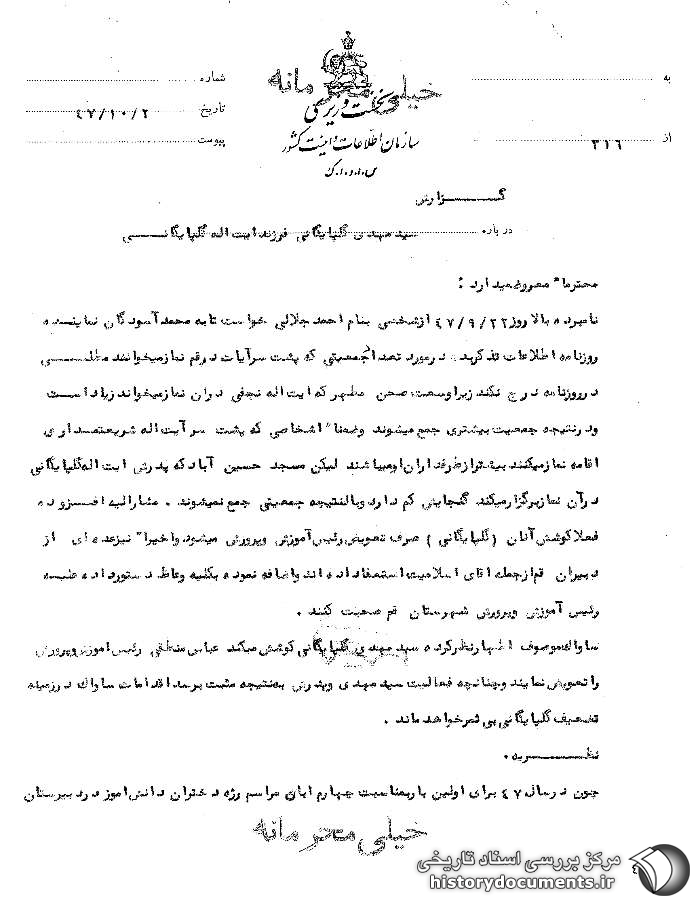 به
شماره
خیلی محرمانه
نخست وزیری
تاریخ ۴۷/۱۰/۲
از ۳۱۶
پیوست
سازمان اطلاعات و امنیت کشور
س.ا.و.ا.ک
گـــزارش
درباره سید مهدی گلپایگانی فرزند ایت اله گلپایگانـــی
محترما" معروضمیدارد :
نامبرده بالا روز ۴۷/۹/۲۲ از شخصی بنام احمد جلالی خواست تا به محمد آسودگان نماینده
روزنامه اطلاعات تذکر دهد در مورد تعداد جمعیتی که پشت سر آیات در قم نماز میخوانند مطلبـــی
در روزنامه درج نکند زیرا وسعت صحن مطهر که ایت اله نجفی در ان نماز میخواند زیاد اســت
و در نتیجه جمعیت بیشتری جمع میشوند وضمنا" اشخاصی که پشت سر آیت اله شریعتمداری
اقامه نماز میکنند بیشتر از طرفداران او میباشند لیکن مسجد حسین آباد که پدرش ایت اله گلپایگانی
در آن نماز برگزار میکند گنجایش کم دارد و بالنتیجه جمعیتی جمع نمیشوند . مشارالیه افـزوده
فعلا کوشش آنان (گلپایگانی) صرف تعویض رئیس آموزش وپرورش میشود واخیرا" نیز عده ای از
دبیران قم از جمله اقای اسلامیت استعفا داده اند واضافه نموده بکلیه وعاظ دستور داده علیـه
رئیس آموزش وپرورش شهرستان قم صحبت کنند .
ساواک موصوف اظهار نظر کرده سید مهدی گلپایگانی کوشش میکند عباس منطقی رئیس اموزش وپرورش
را تعویض نمایند وچنانچه فعالیت سید مهدی وپدرش به نتیجه مثبت برسد اقدامات ساواک در زمینه
تضعیف گلپایگانی بی ثمر خواهد ماند .
نظـــریه .
چون در سال ۴۷ برای اولین بار بمناسبت چهارم ابان مراسم رژه دختران دانش اموز در دبیرستان
خیلی محرمانه
مرکز بررسی اسناد تاریخی
historydocuments.ir